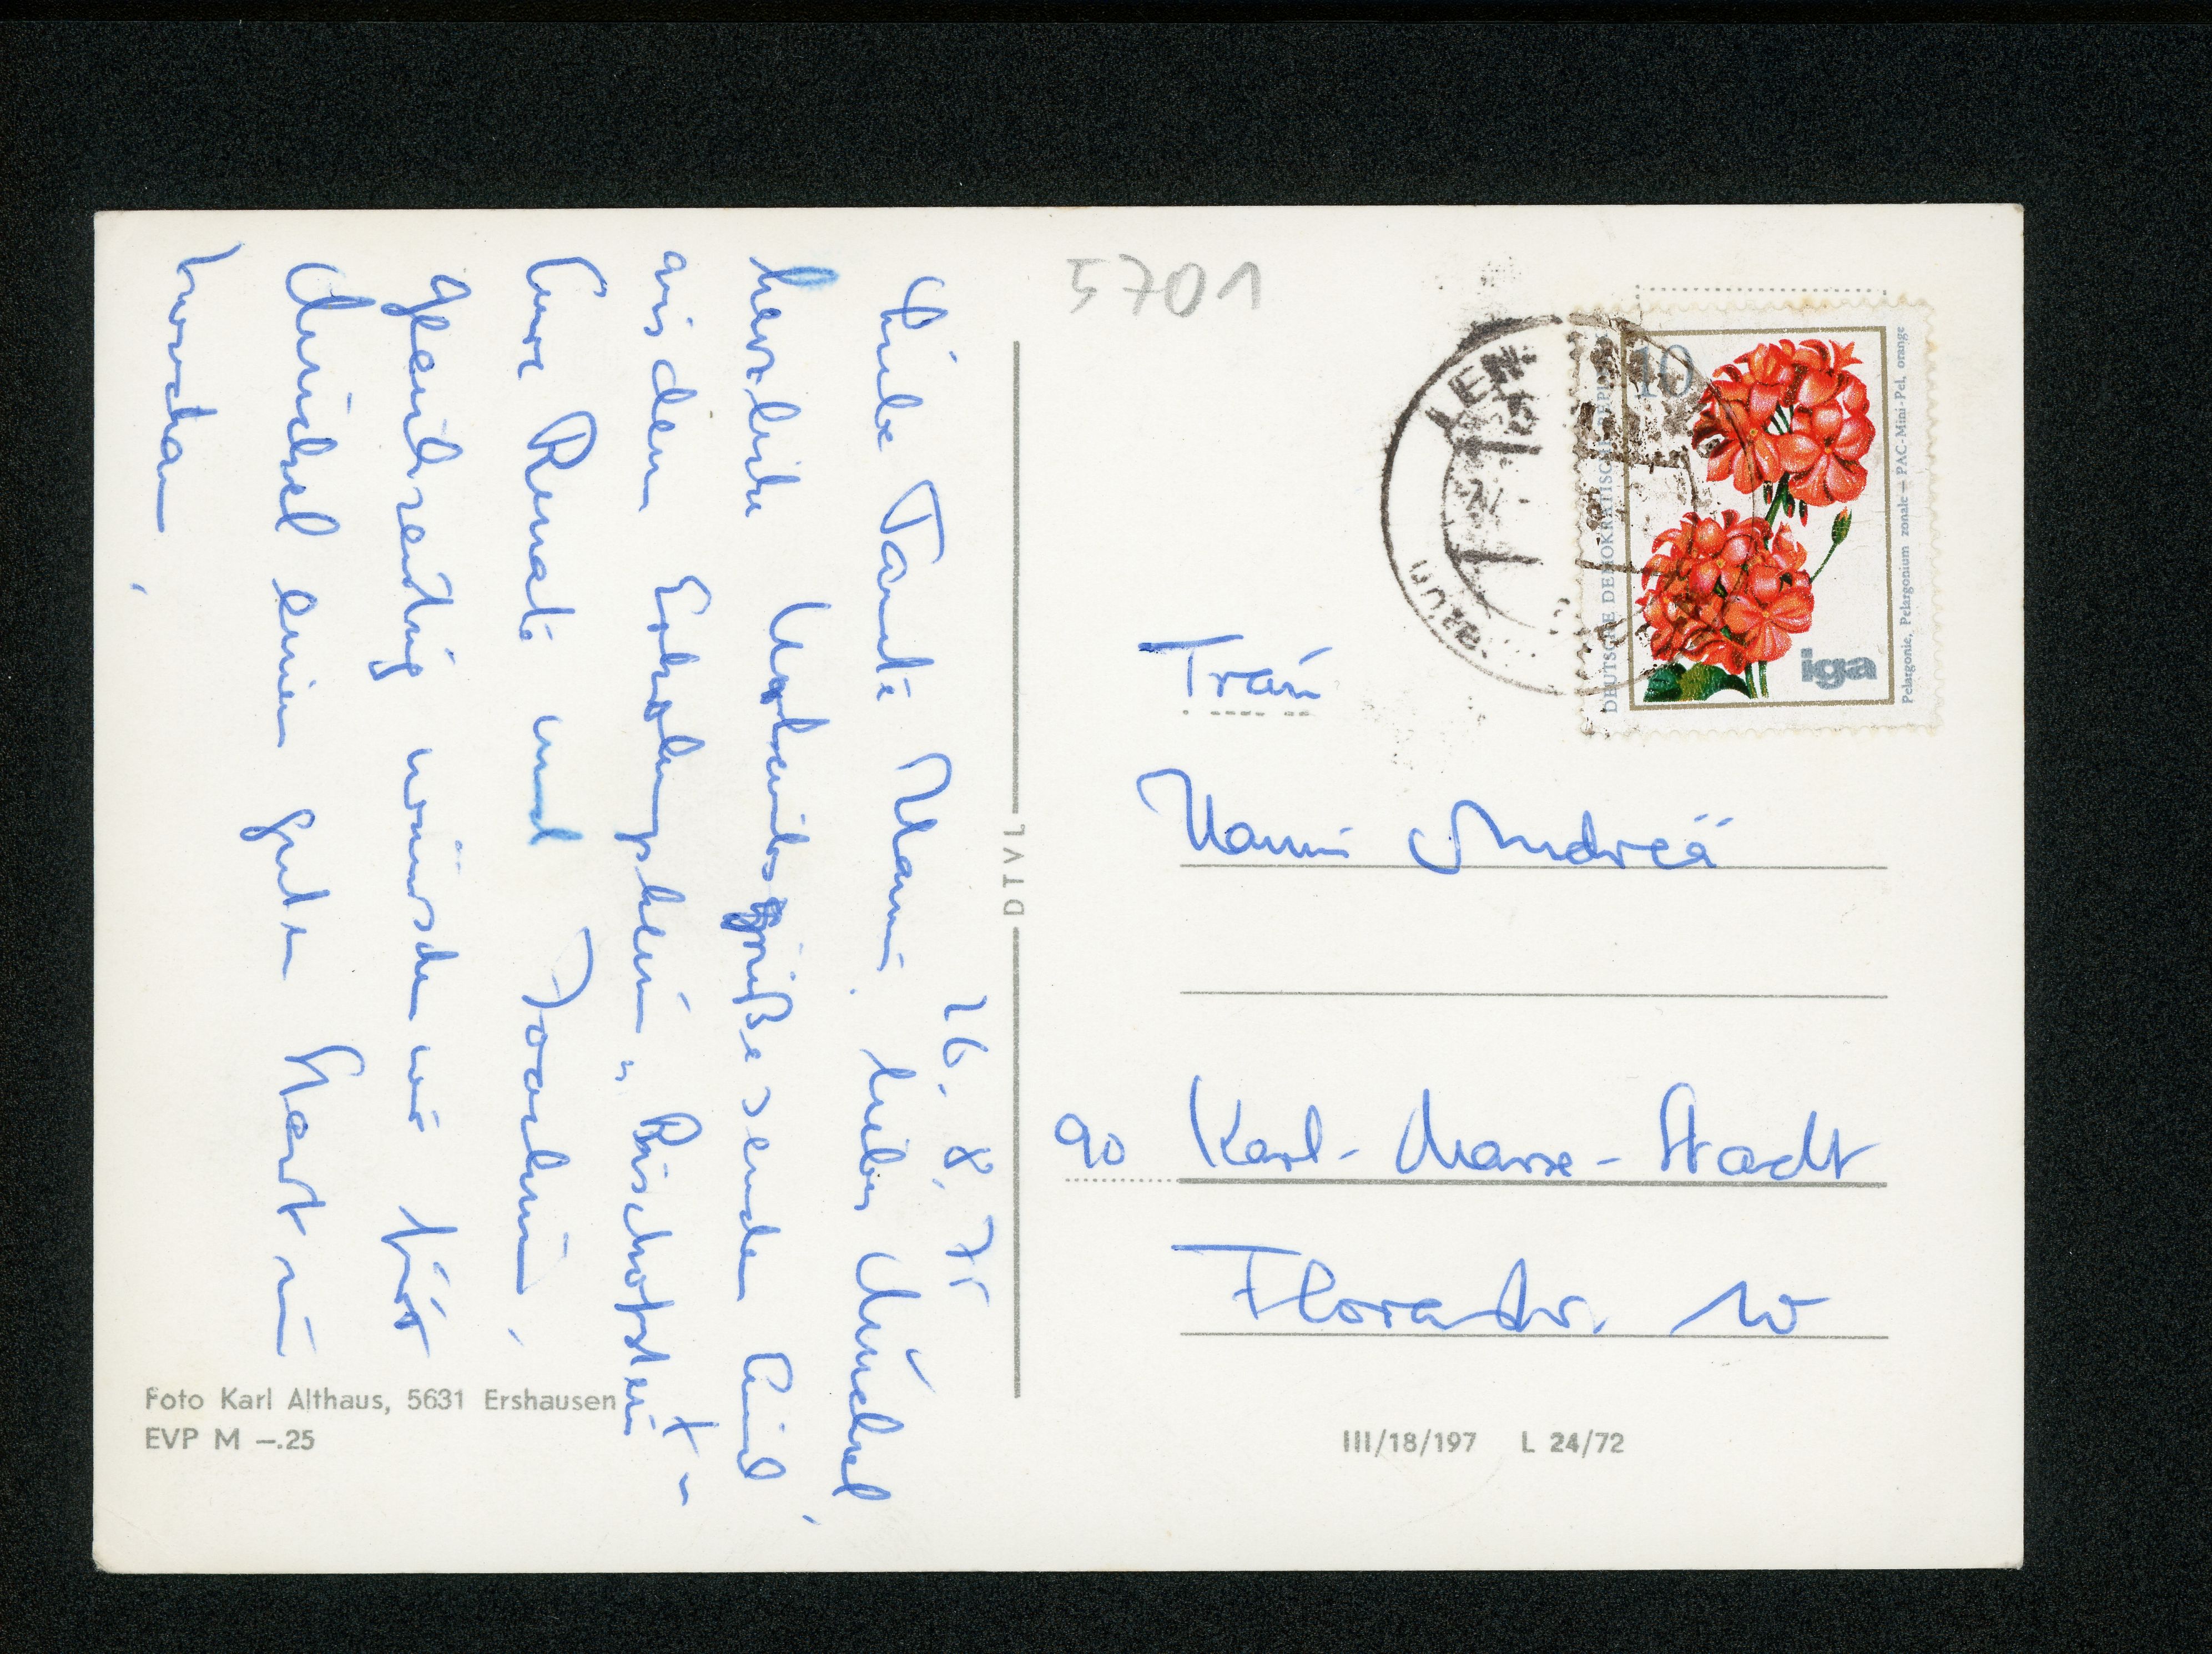 26. 8. 75
Liebe Tante Nanni, liebes Muschel,
herzliche Urlaubsgrüße senden Euch
aus dem Erholungsheim "Bischofstein"
Eure Renate und Joachim,
gleichzeitig wünschen wir für
Muschel einen guten Start in
5701
Frau
Nanni Andreä
90 Karl-Marx-Stadt
Florastr. 10
DTVL
DEUTSCHE DEMOKRATISCHE REPUBLIK
10
iga
Pelargonie, Pelargonium zonale – PAC-Mini-Pel. orange
Foto Karl Althaus, 5631 Ershausen
EVP M –.25
III/18/197 L 24/72